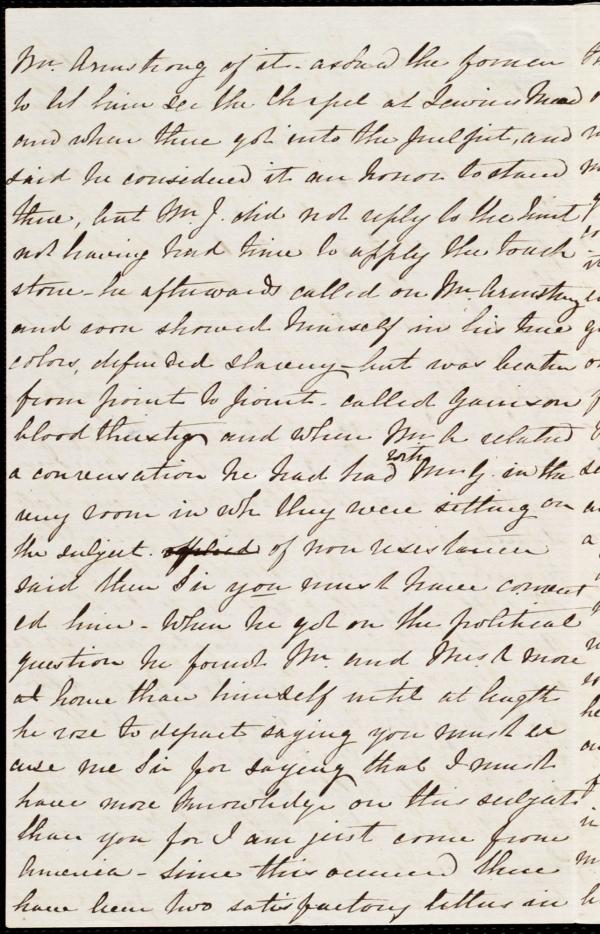 Mr. Armstrong of it - asked the former
to let him see the Chapel at Lewins Mead
and when there got into the pulpit, and
said he considered it an honor to stand
there, but Mr J. did not reply to the hint
not having had time to apply the touch
stone - he afterwards called on Mr. Armstrong
and soon showed himself in his true
colors, defended slavery - but was beaten
from point to point - called Garrison
blood thirsty and when Mr A related
a conversation he had had with Mr G. in the
very room in wh they were sitting on
the subject of non resistance
said then Sir you must have convert
ed him - When he got on the political
question he found Mr. and Mrs A more
at home than himself until at length
he rose to depart saying you must ex
cuse me Sir for saying that I must
have more knowledge on this subject
than you for I am just come from
America - Since this occurred there
have been two satisfactory letters in